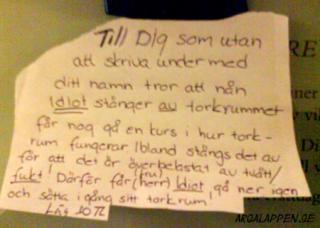 Till Dig som utan
att skriva under med
ditt namn tror att nån
Idiot stänger av torkrummet
får nog gå en kurs i hur tork-
rum fungerar Ibland stängs det av
för att det är överbelastat av tvätt/
fukt! Därför får (fru) (herr) Idiot gå ner igen
och sätta igång sitt torkrum!
ARGALAPPEN.SE